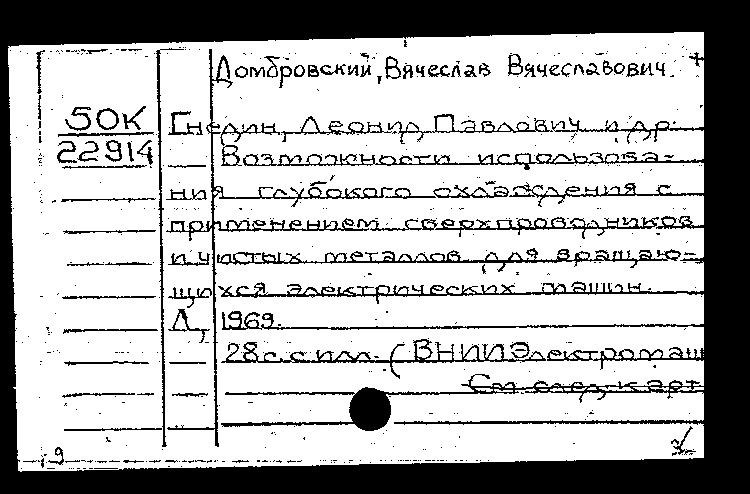 Домбровский, Вячеслав Вячеславович. +
50К
22914
Гнедин, Леонид Павлович и др.
Возможности использова-
ния глубокого охлаждения с
применением сверхпроводников
и чистых металлов для вращаю-
щихся электрических машин.
Л, 1969.
28 с. с илл. (ВНИИЭлектромаш
См. след. карт
9